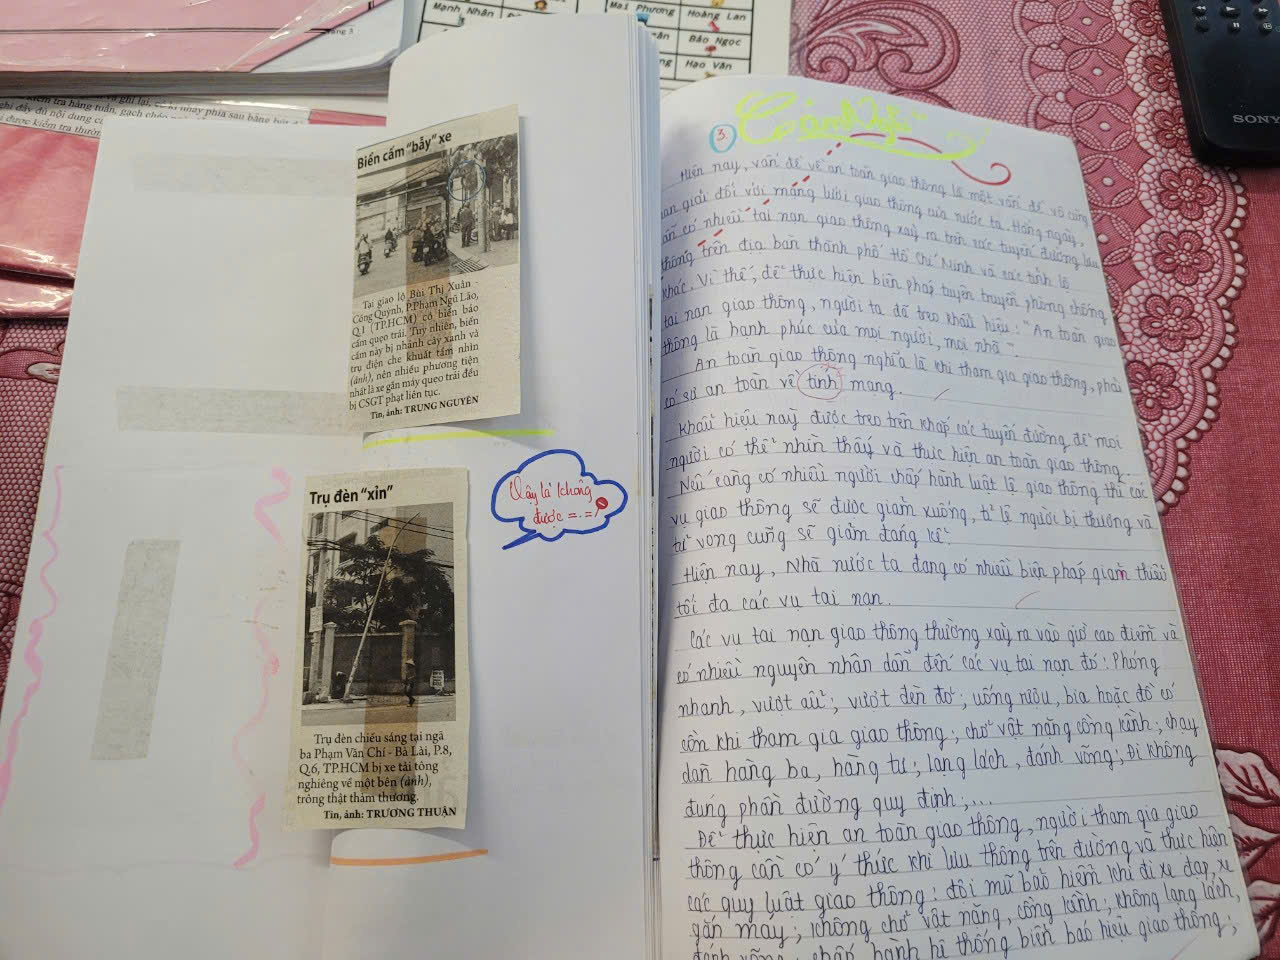 Mạnh Nhân
Mai Phương
Hoàng Lan
Bảo Ngọc
Hạo Văn
SONY
Biển cấm "bẫy" xe
Tại giao lộ Bùi Thị Xuân -
Cống Quỳnh, P.Phạm Ngũ Lão,
Q.1 (TP.HCM) có biển báo
cấm quẹo trái. Tuy nhiên, biển
cấm này bị nhánh cây xanh và
trụ điện che khuất tầm nhìn
(ảnh), nên nhiều phương tiện
nhất là xe gắn máy quẹo trái đều
bị CSGT phạt liên tục.
Tin, ảnh: TRUNG NGUYÊN
Trụ đèn "xỉn"
Trụ đèn chiếu sáng tại ngã
ba Phạm Văn Chí - Bà Lài, P.8,
Q.6, TP.HCM bị xe tải tông
nghiêng về một bên (ảnh),
trông thật thảm thương.
Tin, ảnh: TRƯƠNG THUẬN
Vậy là không
được =.=
3
Cảm Nghĩ
Hiện nay, vấn đề về an toàn giao thông là một vấn đề vô cùng
nan giải đối với mạng lưới giao thông của nước ta. Hằng ngày,
vẫn có nhiều tai nạn giao thông xảy ra trên các tuyến đường lưu
thông trên địa bàn thành phố Hồ Chí Minh và các tỉnh lộ
khác. Vì thế, để thực hiện biện pháp tuyên truyền phòng chống
tai nạn giao thông, người ta đã treo khẩu hiệu: "An toàn giao
thông là hạnh phúc của mọi người, mọi nhà".
An toàn giao thông nghĩa là khi tham gia giao thông, phải
có sự an toàn về tinh mạng.
Khẩu hiệu này được treo trên khắp các tuyến đường để mọi
người có thể nhìn thấy và thực hiện an toàn giao thông.
Nếu càng có nhiều người chấp hành luật lệ giao thông thì các
vụ giao thông sẽ được giảm xuống, tỉ lệ người bị thương và
tử vong cũng sẽ giảm đáng kể.
Hiện nay, Nhà nước ta đang có nhiều biện pháp giảm thiểu
tối đa các vụ tai nạn.
Các vụ tai nạn giao thông thường xảy ra vào giờ cao điểm và
có nhiều nguyên nhân dẫn đến các vụ tai nạn đó: Phóng
nhanh, vượt ẩu; vượt đèn đỏ; uống rượu, bia hoặc đồ có
cồn khi tham gia giao thông; chở vật nặng cồng kềnh; chạy
dàn hàng ba, hàng tư; lạng lách, đánh võng; Đi không
đúng phần đường quy định;...
Để thực hiện an toàn giao thông, người tham gia giao
thông cần có ý thức khi lưu thông trên đường và thực hiện
các quy luật giao thông: đội mũ bảo hiểm khi đi xe đạp, xe
gắn máy; không chở vật nặng, cồng kềnh; không lạng lách,
đánh võng; chấp hành hệ thống biển báo hiệu giao thông;